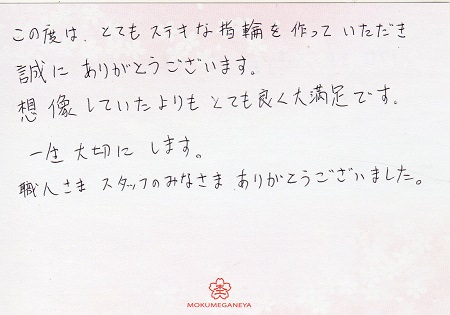 この度は、とてもステキな指輪を作っていただき
誠にありがとうございます。
想像していたよりもとても良く大満足です。
一生大切にします。
職人さまスタッフのみなさまありがとうございました。
MOKUMEGANEYA